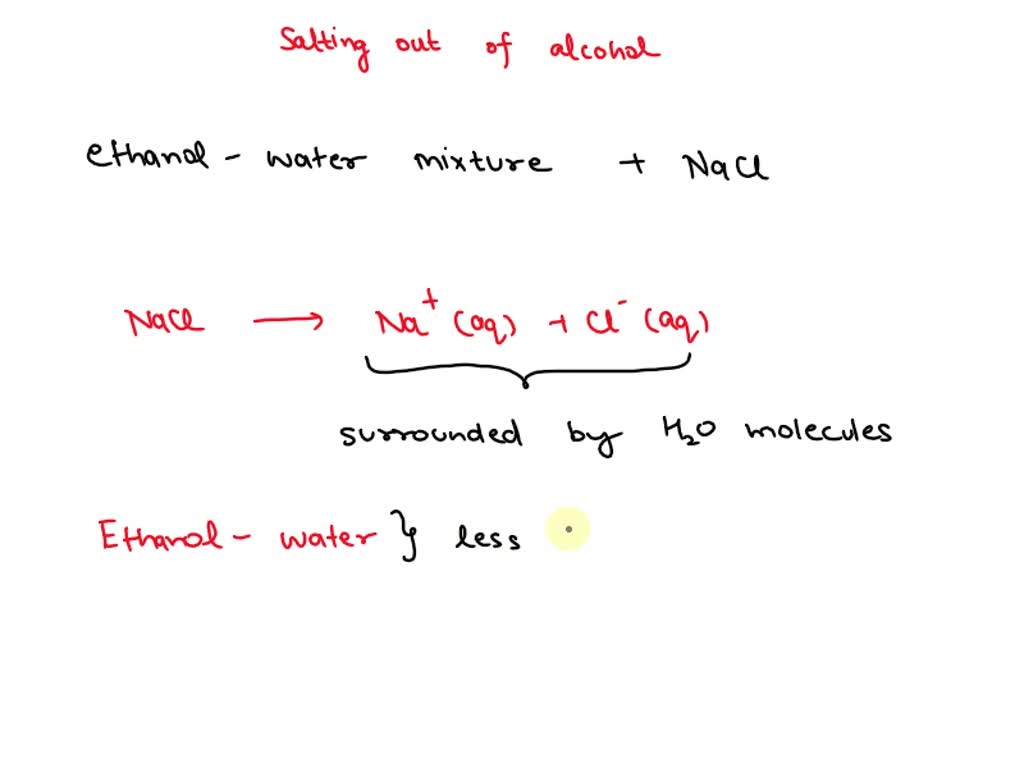 Salting out of alcohol
ethanol - water mixture + NaCl
NaCl ⟶ Na⁺ (aq) + Cl⁻ (aq)
surrounded by H₂O molecules
Ethanol - water } less